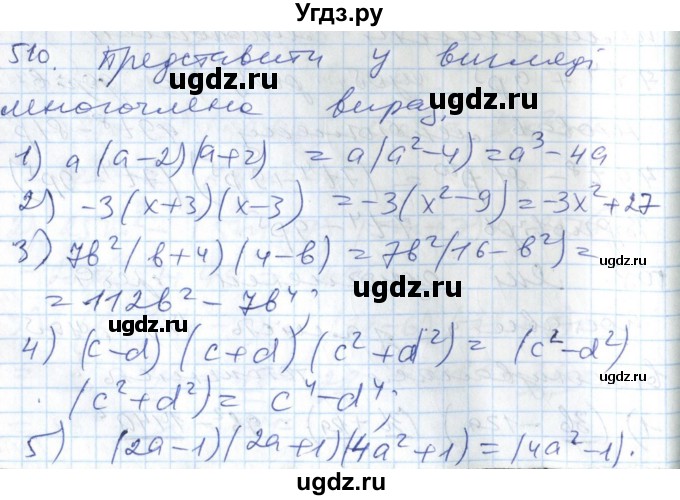 Угдз.ру
510. Представити у вигляді
многочлена вираз:
1) a(a-2)(a+2) = a(a²-4) = a³-4a
2) -3(x+3)(x-3) = -3(x²-9) = -3x²+27
3) 7b²(b+4)(4-b) = 7b²(16-b²) =
= 112b² - 7b⁴;
4) (c-d)(c+d)(c²+d²) = (c²-d²)
(c²+d²) = c⁴-d⁴;
5) (2a-1)(2a+1)(4a²+1) = (4a²-1)·
ugdz.ru
ugdz.ru
ugdz.ru
ugdz.ru
ugdz.ru
ugdz.ru
ugdz.ru
ugdz.ru
ugdz.ru
Угдз.ру